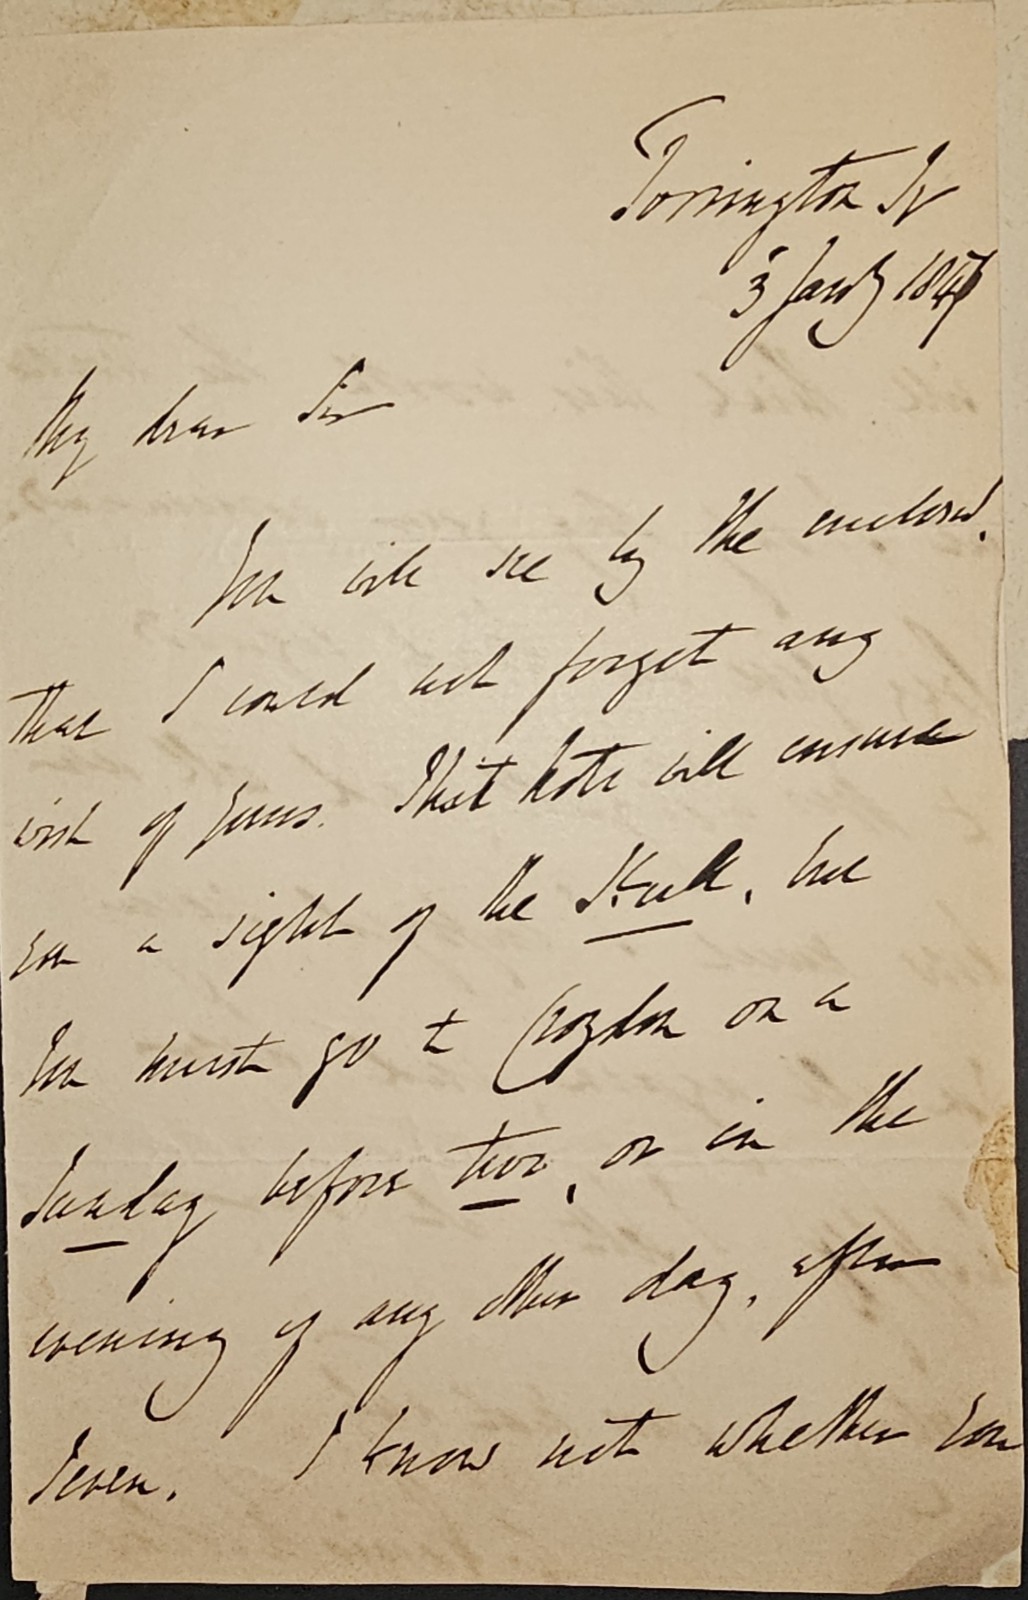 Torrington Sq
3 Jany 1847
My dear Sir
You will see by the enclosed,
that I could not forget any
wish of yours. That note will ensure
you a sight of the Skull, but
You must go to Croydon on a
Sunday before two, or in the
evening of any other day, after
Seven. I know not whether you